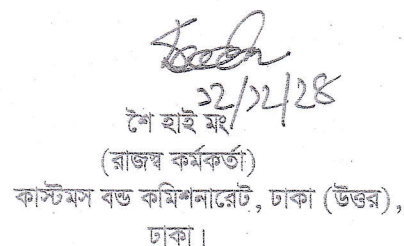 ১২/১২/২৪
শৈ হাই মং
(রাজস্ব কর্মকর্তা)
কাস্টমস বন্ড কমিশনারেট, ঢাকা (উত্তর),
ঢাকা।